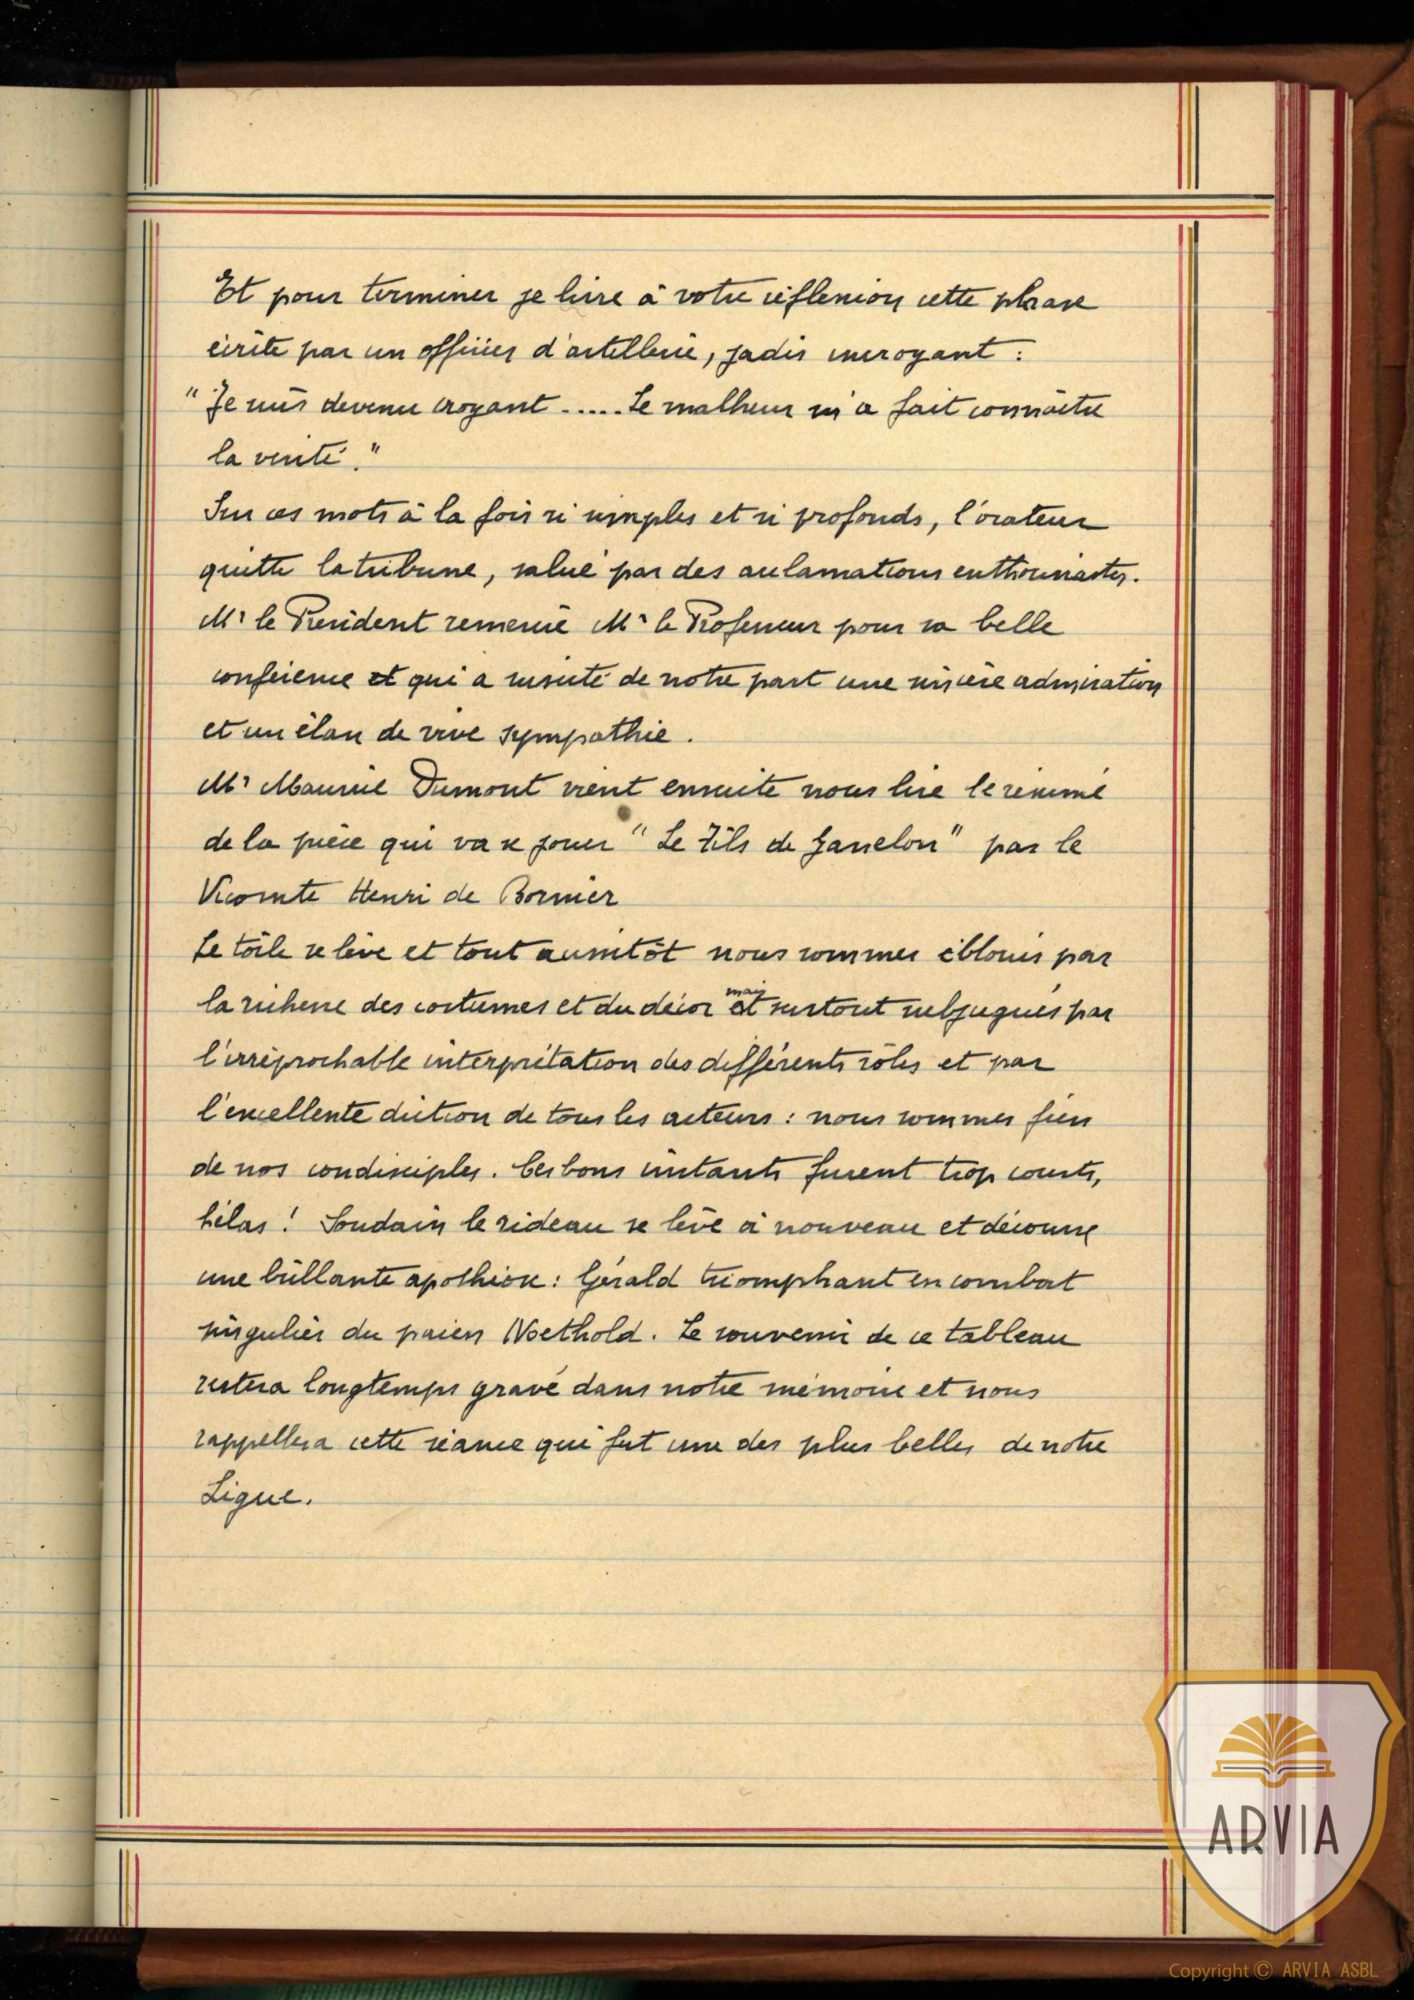 Et pour terminer je livre à votre réflexion cette phrase
écrite par un officier d'artillerie, jadis incroyant :
"Je suis devenu croyant ..... Le malheur m'a fait connaître
la vérité."
Sur ces mots à la fois si simples et si profonds, l'orateur
quitte la tribune, salué par des acclamations enthousiastes.
Mr le Président remercie Mr le Professeur pour sa belle
conférence et qui a suscité de notre part une sincère admiration
et un élan de vive sympathie.
Mr Maurice Dumont vient ensuite nous lire le résumé
de la pièce qui va se jouer "Le Fils de Ganelon" par le
Vicomte Henri de Bornier
Le toile se lève et tout aussitôt nous sommes éblouis par
la richesse des costumes et du décor et mais surtout subjugués par
l'irréprochable interprétation des différents rôles et par
l'excellente diction de tous les acteurs : nous sommes fiers
de nos condisciples. Ces bons instants furent trop courts,
hélas ! Soudain le rideau se lève à nouveau et découvre
une brillante apothéose : Gérald triomphant en combat
singulier du païen Noethold. Le souvenir de ce tableau
restera longtemps gravé dans notre mémoire et nous
rappellera cette séance qui fut une des plus belles de notre
Ligue.
ARVIA
Copyright © ARVIA ASBL